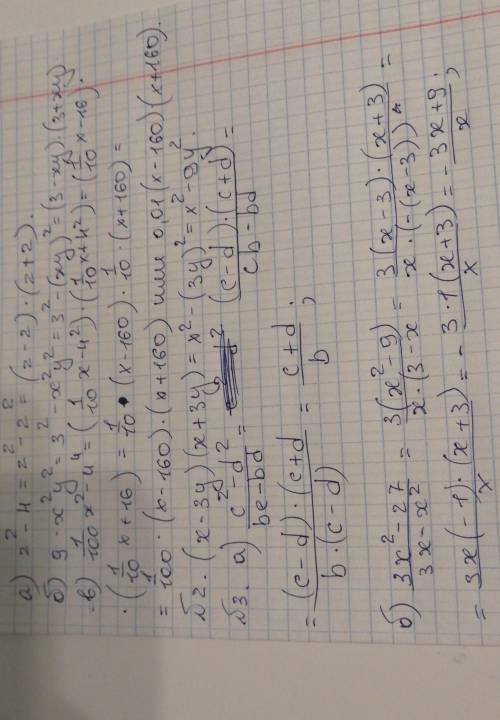 а) z² - 4 = z² - 2² = (z - 2) · (z + 2).
б) 9 - x²y² = 3² - x²y² = 3² - (xy)² = (3 - xy) · (3 + xy)
в) 1/100 x² - 4⁴ = (1/10 x - 4²) · (1/10 x + 4²) = (1/10 x - 16) ·
· (1/10 x + 16) = 1/10 · (x - 160) · 1/10 (x + 160) =
= 1/100 · (x - 160) · (x + 160) или 0,01 (x - 160) (x + 160).
№2. (x - 3y) (x + 3y) = x² - (3y)² = x² - 9y².
№3. а) (c² - d²)/(bc - bd) = ((c - d) · (c + d))/(cb - bd) =
= ((c - d) · (c + d)/(b · (c - d)) = (c + d)/b ;
б) (3x² - 27)/(3x - x²) = (3(x² - 9))/(x · (3 - x) = (3(x - 3) · (x + 3))/(x · (-(x - 3))) =
= (3x(-1) · (x + 3))/x = - (3 · 1(x + 3))/x = - (3x + 9)/x ;